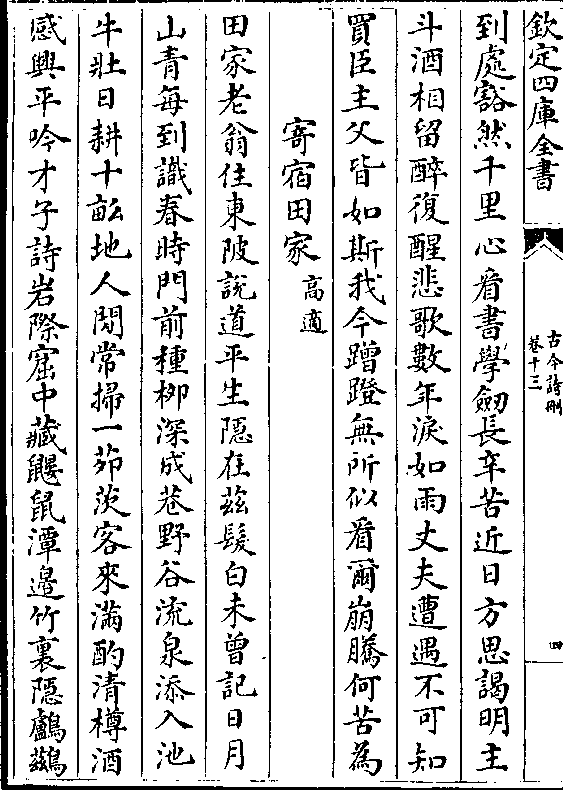 欽定四庫全書
古今詩刪
卷十三
四
到處豁然千里心看書學劒長辛苦近日方思謁明主
斗酒相留醉復醒悲歌數年淚如雨丈夫遭遇不可知
買臣主父皆如斯我今蹭蹬無所似看爾崩騰何苦為
寄宿田家 高適
田家老翁住東陂說道平生隱在茲髮白未曾記日月
山青每到識春時門前種栁深成巷野谷流泉添入池
牛壯日耕十畝地人閒常掃一茆茨客來滿酌清樽酒
感興平吟才子詩岩際窟中藏鼴鼠潭邉竹裏隠鸕鷀